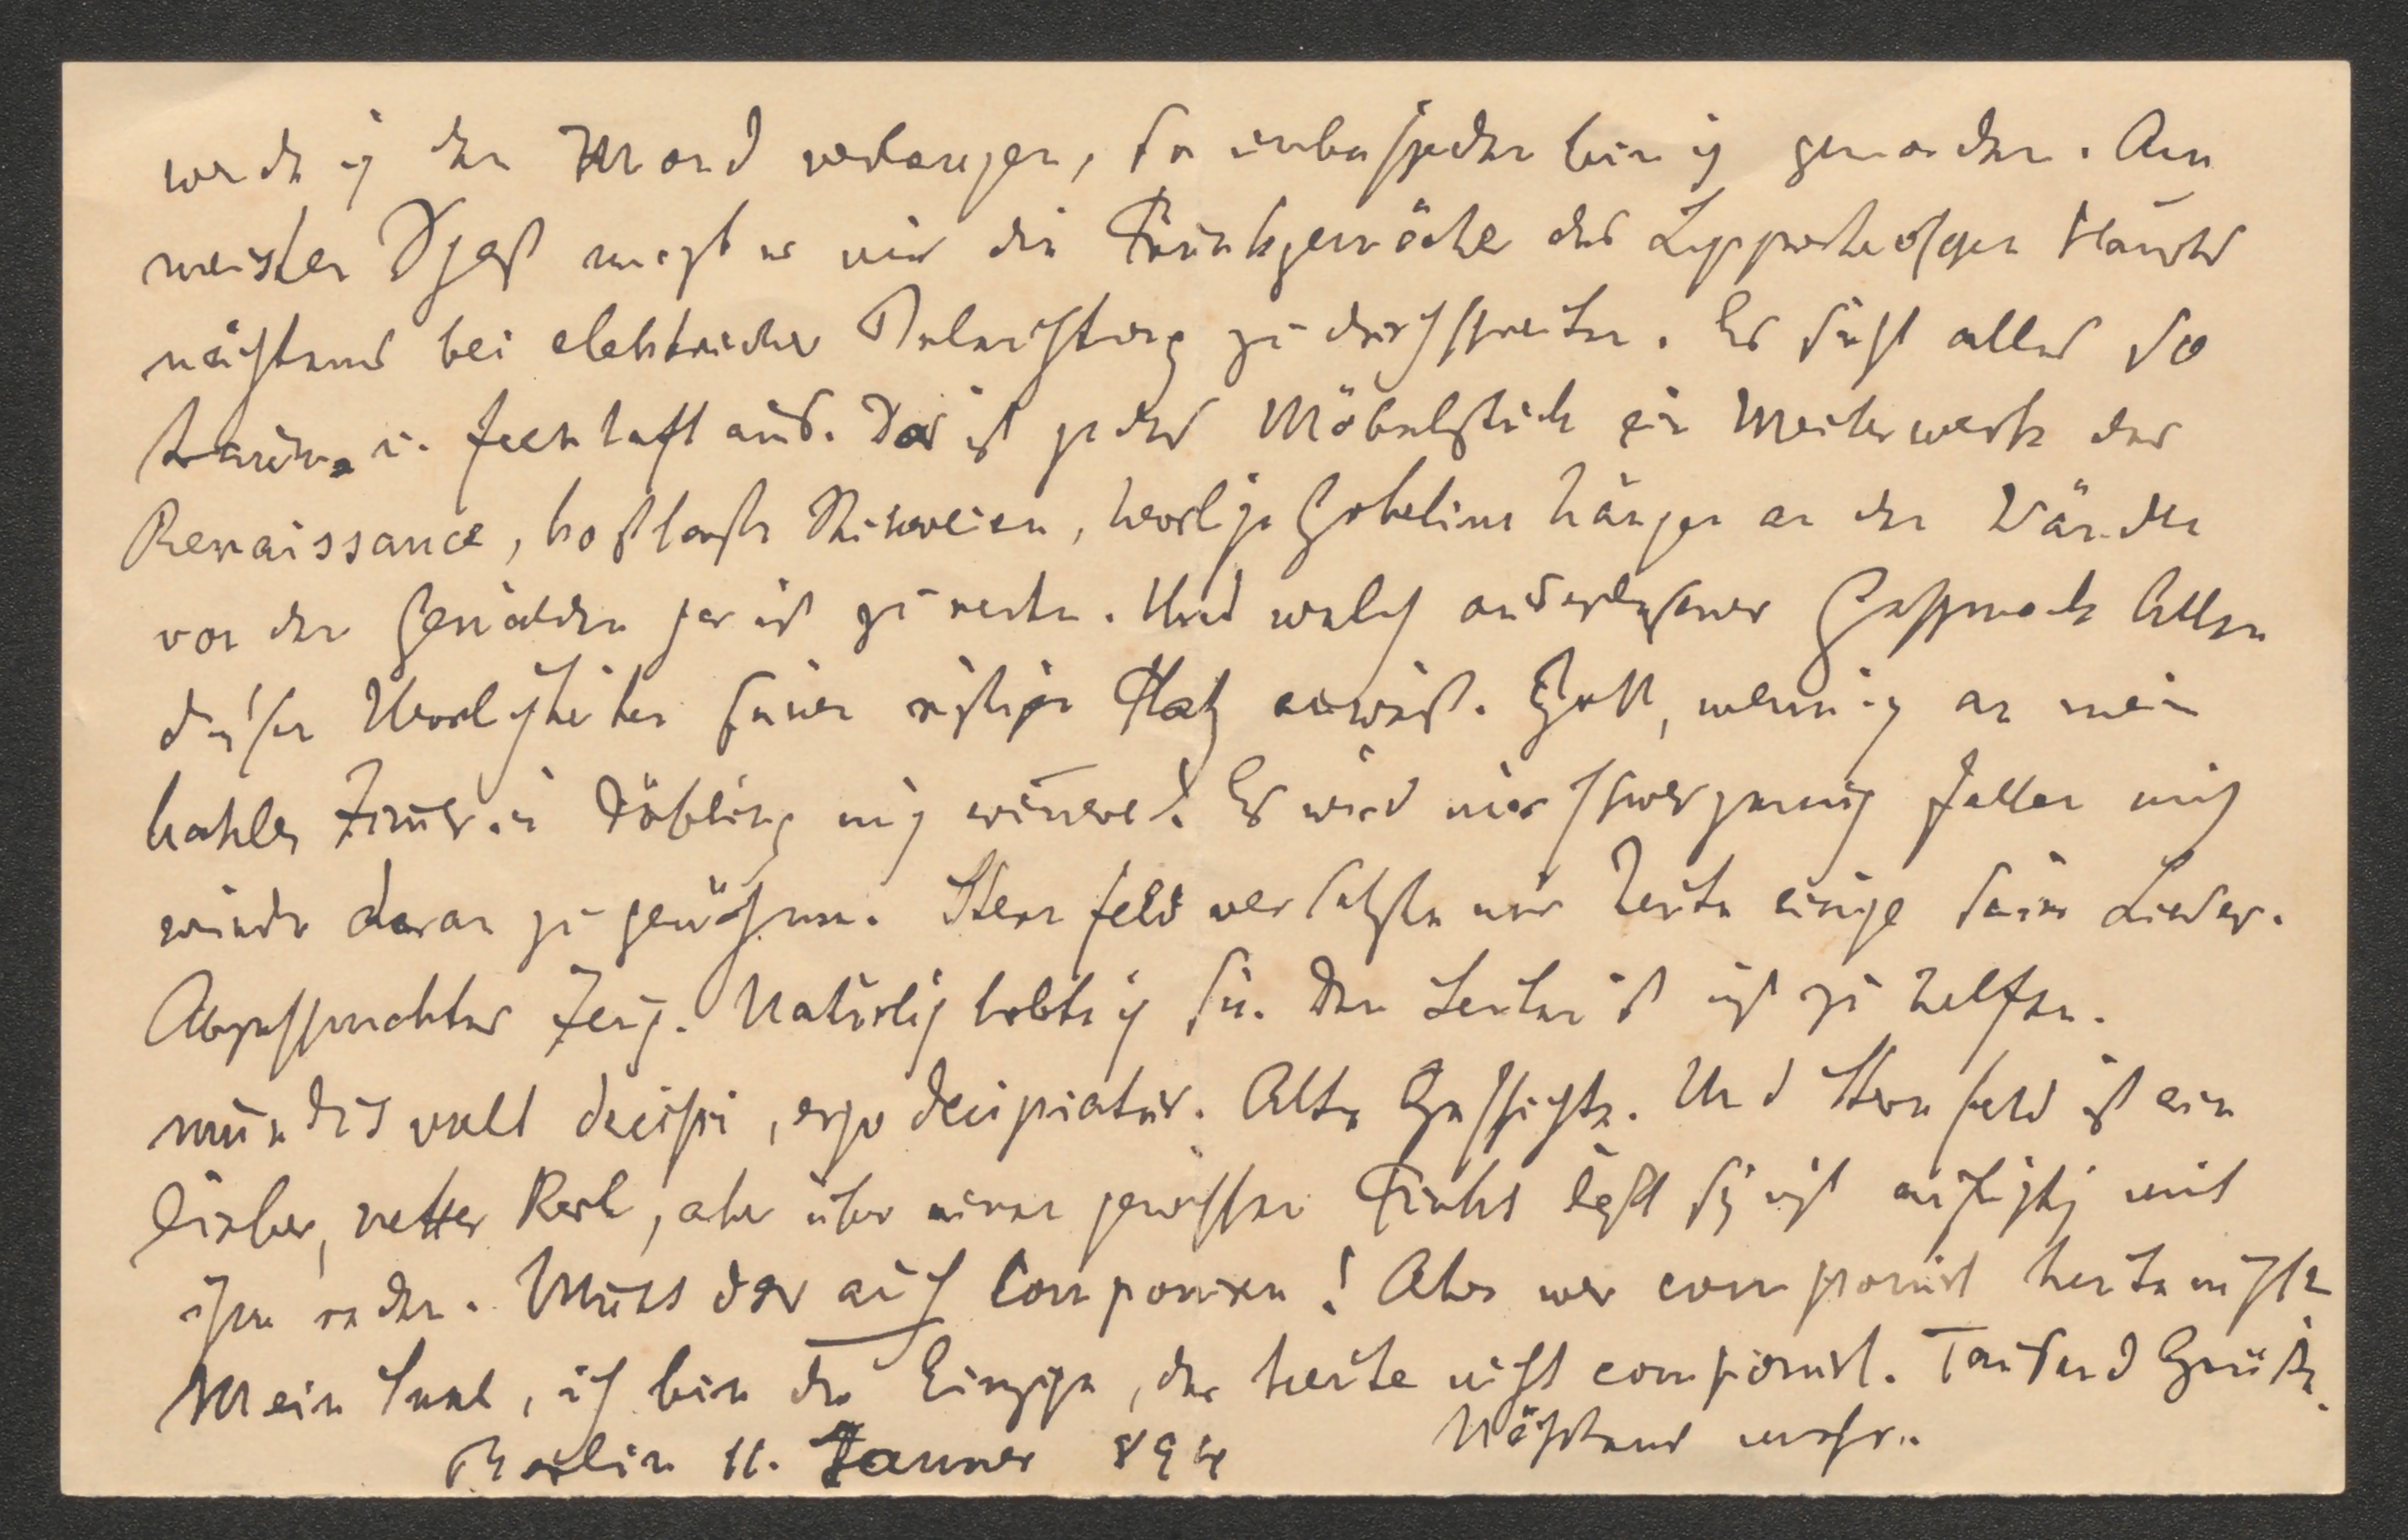 werde ich den Mond verlangen, so unbescheiden bin ich geworden. Am
meisten Spaß macht es mir die Prunkgemächer des Lipperheide'schen Hauses
nächstens bei elektrischer Beleuchtung zu durchschreiten. Es sieht alles so
traum- u. feenhaft aus. Da ist jedes Möbelstück ein Meisterwerk der
Renaissance, kostbarste Stickereien, herrliche Gobelins hängen an den Wänden
von den Gemälden gar nicht zu reden. Und welch auserlesener Geschmack Allen
diesen Herrlichkeiten seinen richtigen Platz anweist. Gott, wenn ich an mein
kahles Zimmer in Döbling mich erinnere! Es wird mir schwer genug fallen mich
wieder daran zu gewöhnen. Sternfeld versetzte mir heute einige seiner Lieder.
Abgeschmacktes Zeug. Natürlich lobte ich sie. Den Leuten ist nicht zu helfen.
mundus vult decipi, ergo decipiatur. Alte Geschichte. Und Sternfeld ist ein
lieber, netter Kerl, aber über einen gewissen Punkt läßt sich nicht aufrichtig mit
ihm reden. Muss der auch componiren! Aber wer componirt heute nicht?
Mein Seel, ich bin der Einzige, der heute nicht componirt. Tausend Grüße.
Nächstens mehr.
Berlin 11. Jänner 894